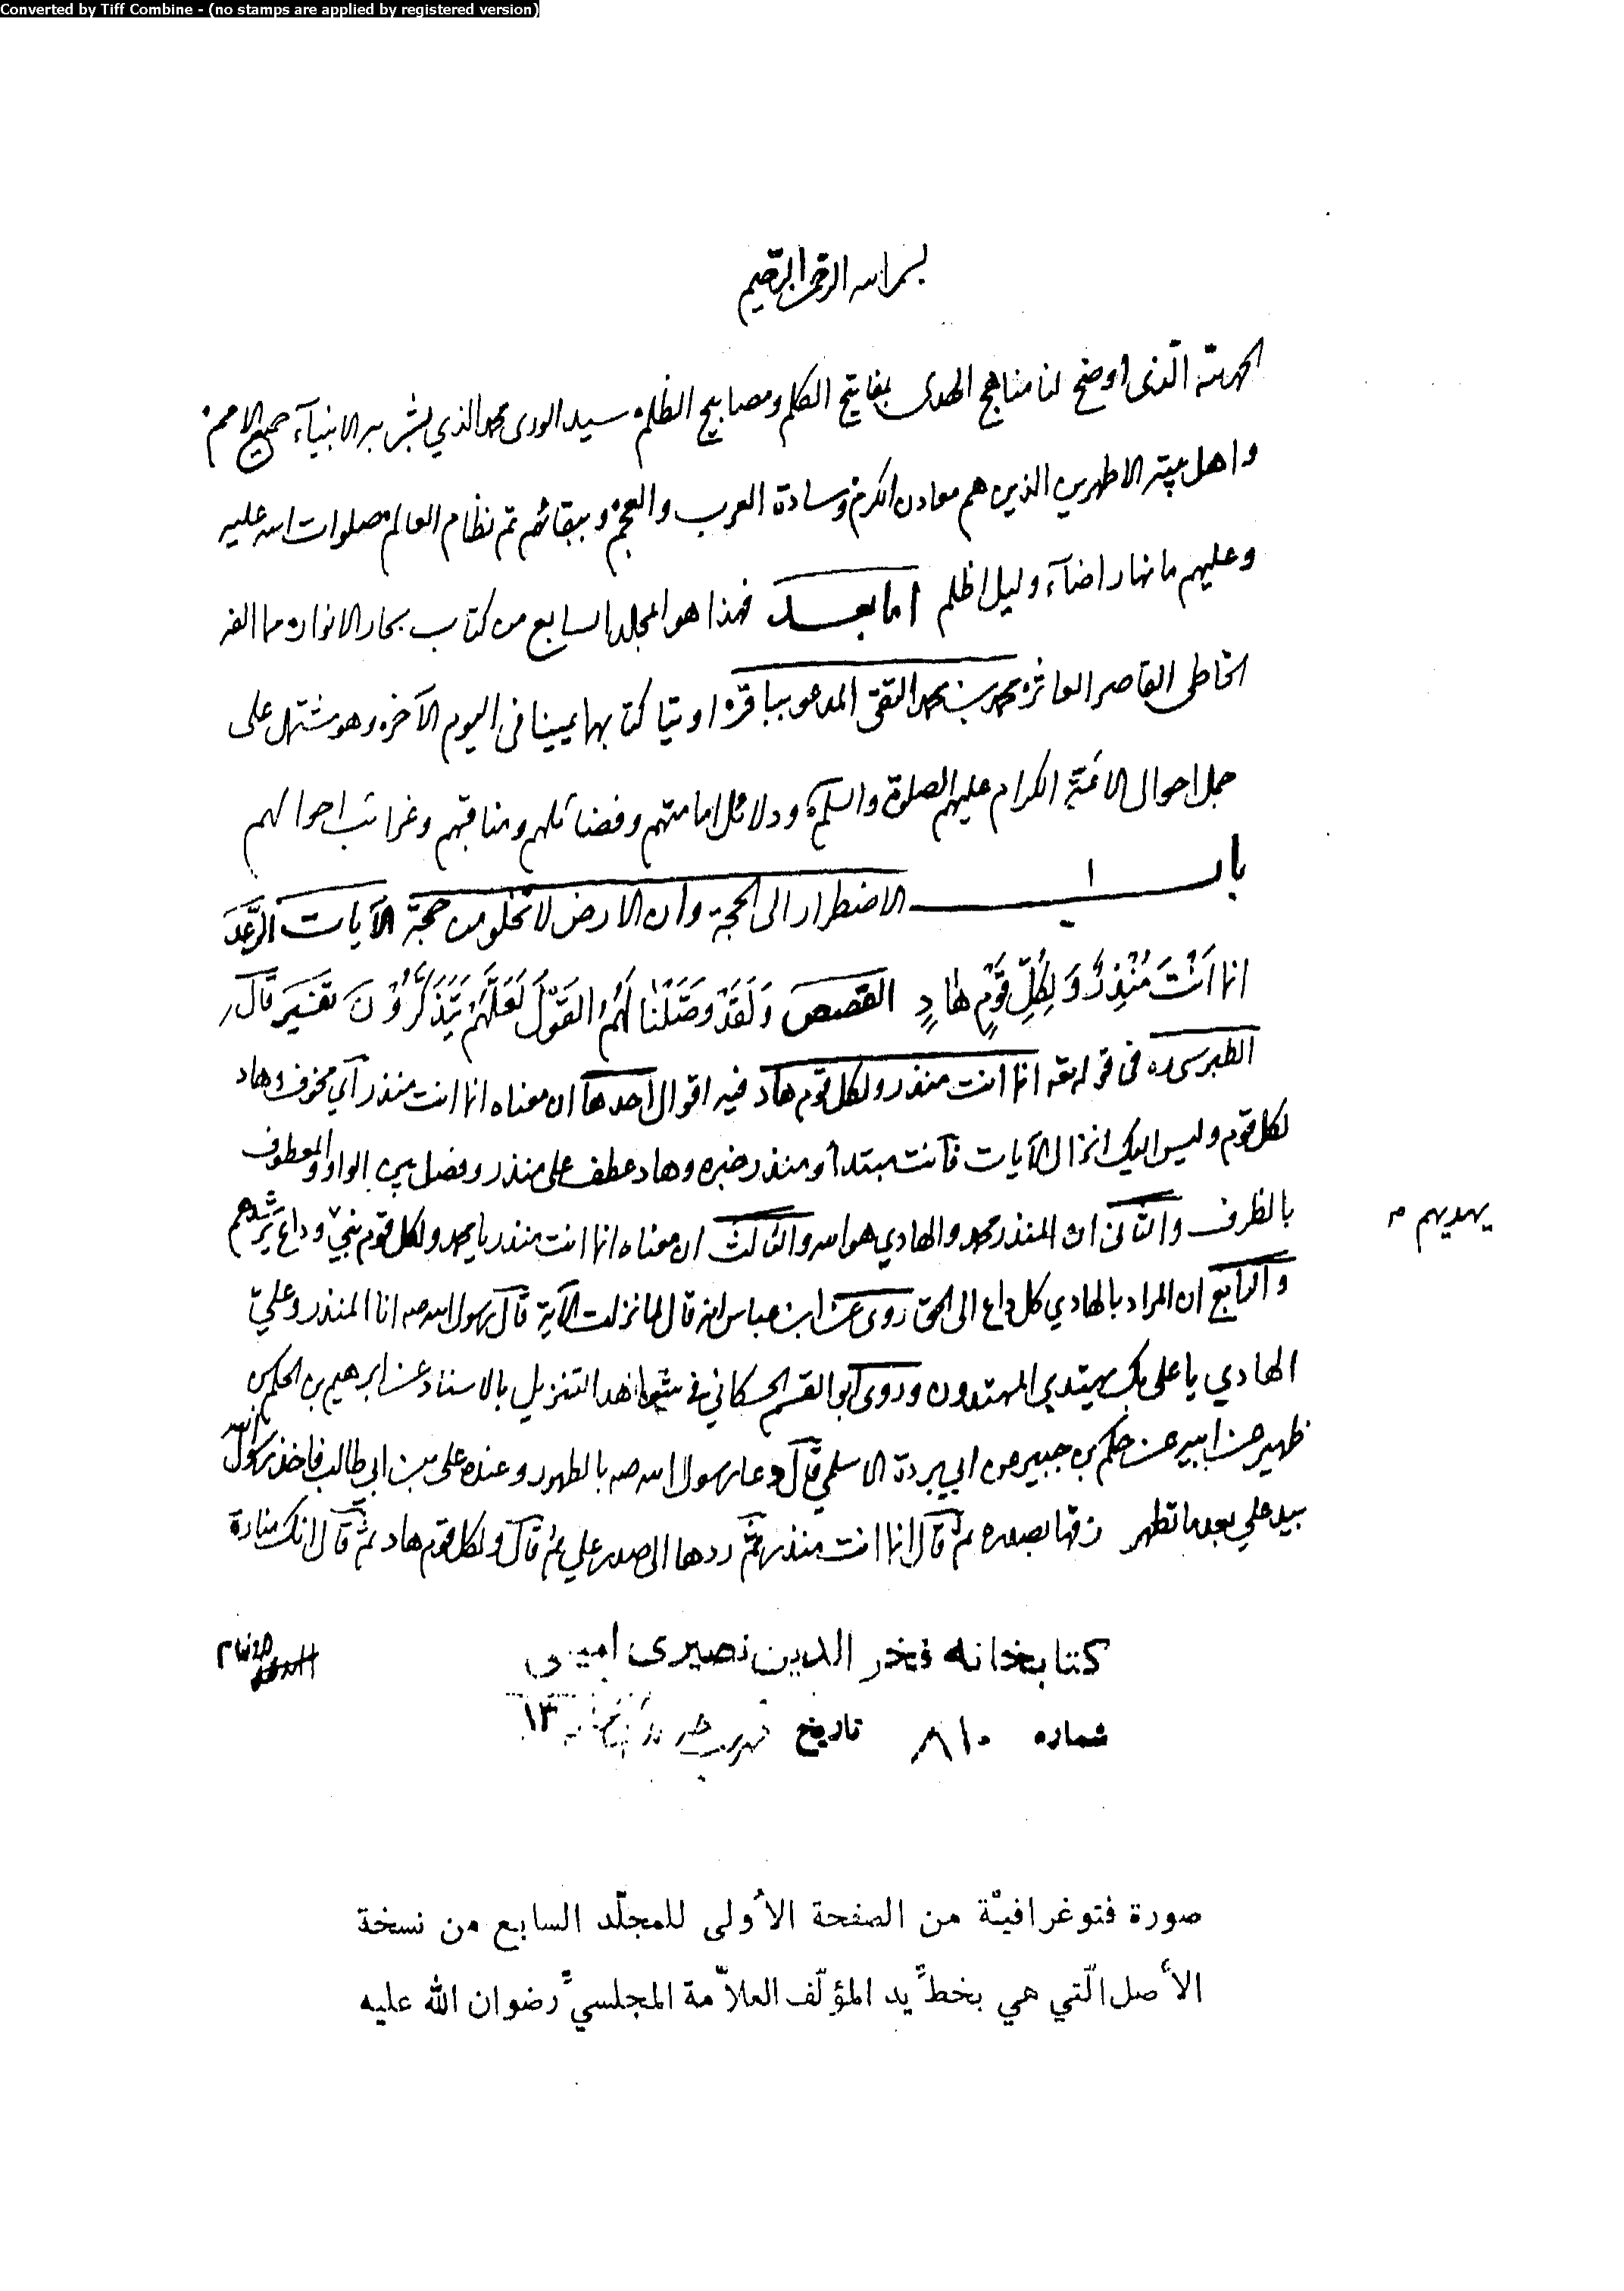 Converted by Tiff Combine - (no stamps are applied by registered version)
بسم الله الرحمن الرحيم
الحمد لله الّذى أوضح لنا مناهج الهدى بمفاتيح الكلم ومصابيح الظلم سيد الورى محمد الذي بشر به الانبيآء جميع الامم
واهل بيته الاطهرين الذين هم معادن الكرم وسادة العرب والعجم وببقائهم تم نظام العالم صلوات الله عليه
وعليهم ما نهار اضآء وليل اظلم اما بعد فهذا هو المجلد السابع من كتاب بحار الانوار مما الفه
الخاطى القاصر العاثر محمد بن محمد التقى المدعو بباقر اوتيا كتابهما يمينا فى اليوم الآخر وهو مشتمل على
جمل احوال الائمة الكرام عليهم الصلوة والسلام ودلائل امامتهم وفضائلهم ومناقبهم وغرائب احوالهم
باب ١ الاضطرار الى الحجة وأن الارض لا تخلو من حجة الآيات الرّعد
انما اَنْتَ مُنْذِرٌ وَلِكُلِّ قَوْمٍ هَادٍ القصص وَلَقَدْ وَصَّلْنَا لَهُمُ القَوْلَ لَعَلَّهُمْ يَتَذَكَّرُوْنَ تفسير قال
الطبرسى ره فى قوله تعه انما انت منذر ولكل قوم هاد فيه اقوال احدها ان معناه انما انت منذر أي مخوف وهاد
لكل قوم وليس اليك انزال الآيات فأنت مبتدأ ومنذر خبره وهاد عطف على منذر وفصل بين الواو والمعطوف
بالظرف والثانى ان المنذر محمد والهادي هو الله والثالث ان معناه انما انت منذر يا محمد ولكل قوم نبيّ وداع يرشدهم
يهديهم
والرابع ان المراد بالهادي كل داع الى الحق روى عن ابن عباس انه قال لما نزلت الآية قال رسول الله صه انا المنذر وعليّ
الهادي يا على بك يهتدي المهتدون وروى أبو القسم الحسكاني فى شواهد التنزيل بالاسناد عن ابرهيم بن الحكم بن
ظهير عن ابيه عن حكم بن جبير عن ابي بردة الاسلمي قال دعا رسول الله صه بالطهور وعنده على بن ابي طالب فاخذ رسول الله
بيد علي بعد ما تطهر فالزقها بصدره ثم قال انما انت منذر ثم ردها الى صدر علي ثم قال ولكل قوم هاد ثم قال انك منارة
كتابخانه فخر الدين نصيرى امينى
شماره ٨١٠ تاريخ ١٣
صورة فتوغرافيّة من الصفحة الأولى للمجلّد السابع من نسخة
الأصل الّتي هي بخطّ يد المؤلّف العلاّمة المجلسيّ رضوان الله عليه